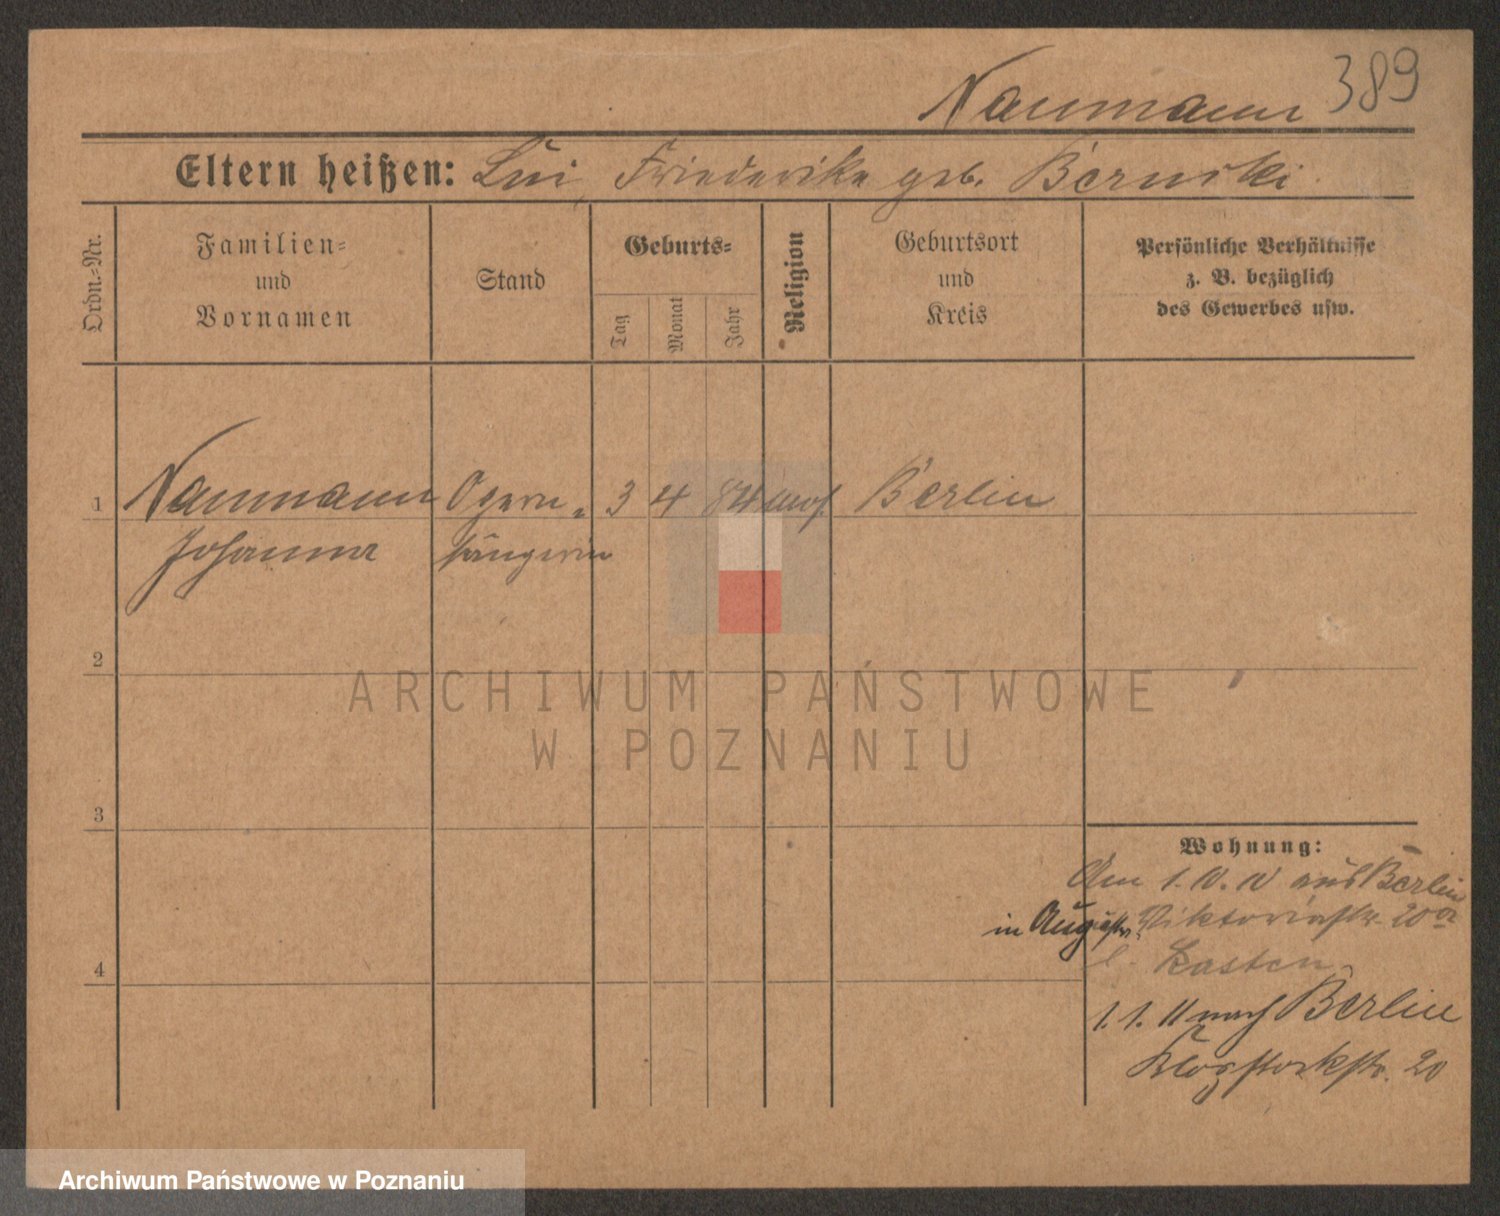 Naumann 389
Eltern heißen: Lui, Friederike geb. Bernski
Ordn.-Nr.
Familien-
und
Vornamen
Stand
Geburts-
Tag
Monat
Jahr
Religion
Geburtsort
und
Kreis
Persönliche Verhältnisse
z. B. bezüglich
des Gewerbes usw.
1 Naumann Opern- 3 4 84 mos. Berlin
Johanna sängerin
2
3
4
Wohnung:
Am 1. 10. 10 aus Berlin
in Viktoriastr. 20a
b. Kasten
1. 1. 11 nach Berlin
Klopstockstr. 20
ARCHIWUM PAŃSTWOWE
W POZNANIU
Archiwum Państwowe w Poznaniu